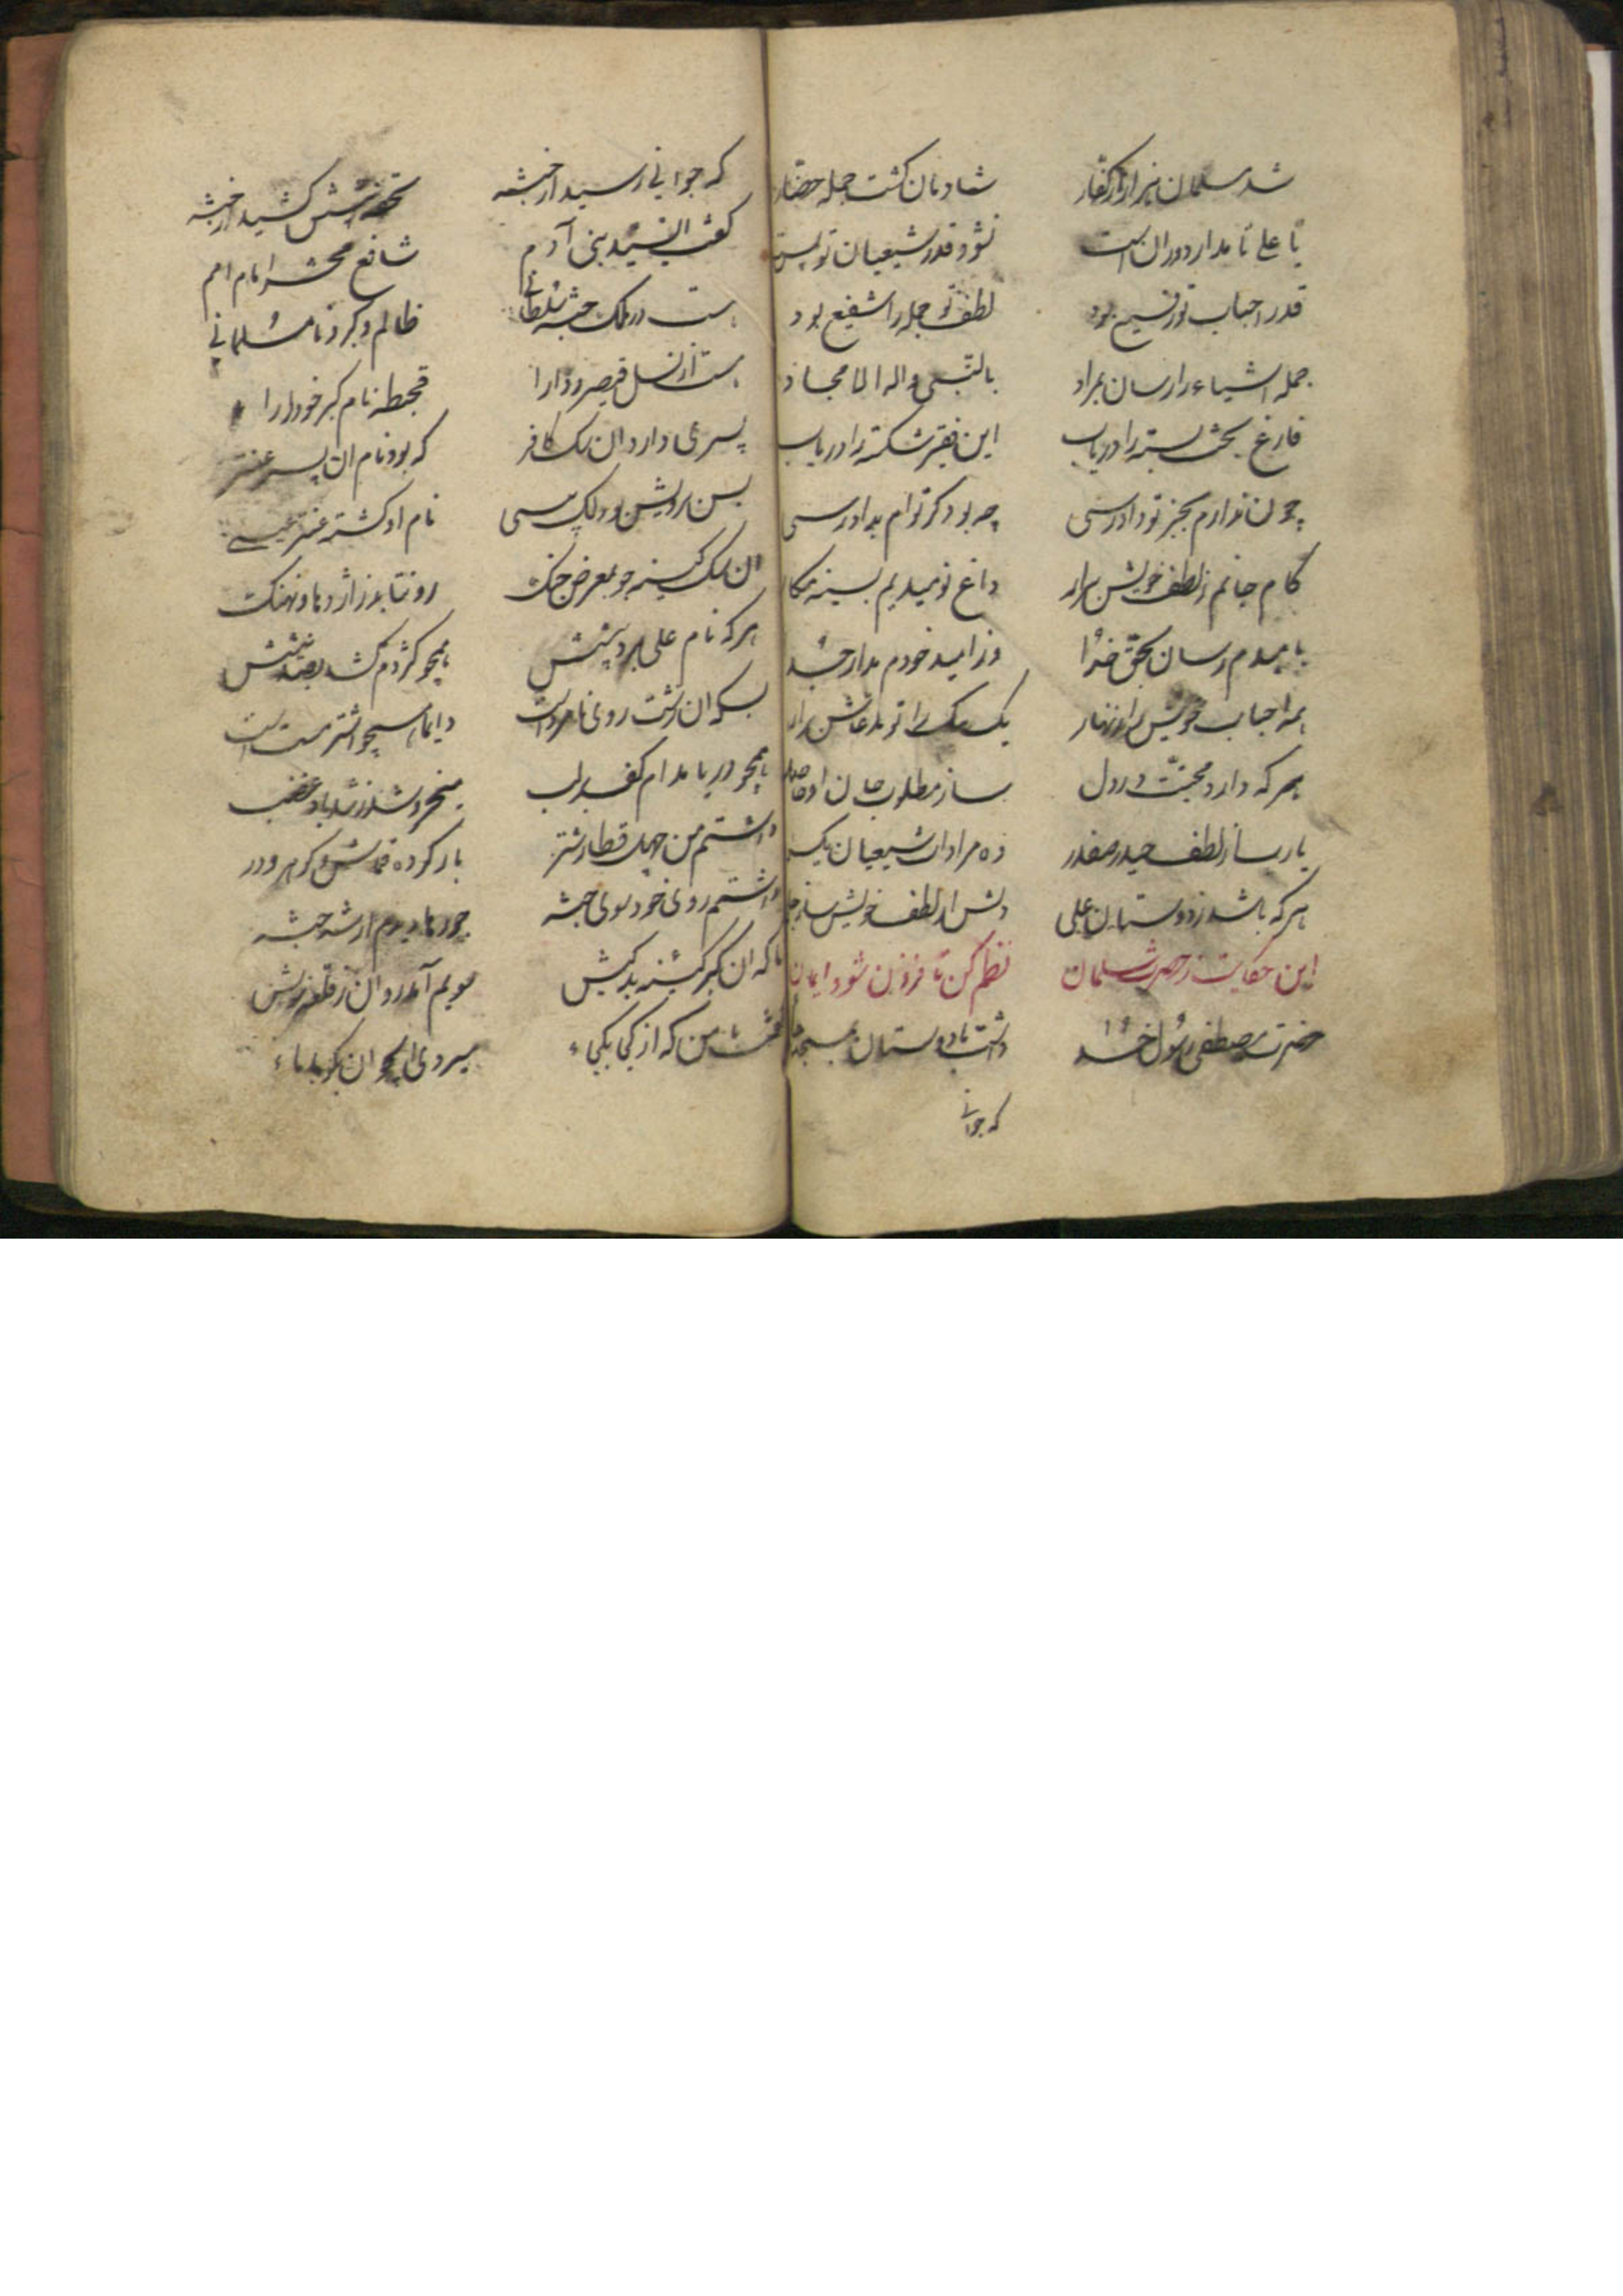 شد مسلمان هزار از کفار شادمان کشت جمله حضار
تا علی تا مدار دوران است نشود قدر شیعیان تو پست
قدر احباب تو رفیع بود لطف تو جمله را شفیع بود
جمله اشیاء را رسان بمراد بالنبی واله الامجاد
فارغ بخش بسته را دریاب این فقیر شکسته را دریاب
چون ندارم بجز تو دادرسی چه بود کر توام بدادرسی
کام جانم ز لطف خویش برار داغ نومیدیم بسینه
بامیدم رسان بحق خدا وز امید خودم مدار جدا
همه احباب خویش را یک بیک را تو مدعاش برار
هر که دارد محبتت در دل ساز مطلوب جان او حاصل
یار ساز لطف حیدر صفدر ده مرادات شیعیان یکسر
هر که باشد ز دوستان علی دلش از لطف خویش ساز
این حکایت ز حضرت سلمان نظم کن تا فزون شود ایمان
حضرت مصطفی رسول خدا داشت با دوستان بمسجد
که جوانی
که جوانی رسید از حبشه تحفه پیشش کشید از حبشه
کفت السید بنی آدم شافع محشر امام امم
هست در ملک حبشه سلطانی ظالم و کبر و نامسلمانی
هست از نسل قیصر و دارا قحطه نام کبر خودرا
پسری دارد ان سک کافر که بود نام ان پسر عنتر
بس نام او کشته عنتر
ان سک کینه جو بمعرض جنک رو نتابد ز اژدها و نهنک
هر که نام علی برد پیشش همچو کژدم کشد بصد نیشش
بسکه ان زشت روی نامرد است دایما همچو اشتر مست است
همچو دریا مدام کف بر لب میخروشد ز تند باد غضب
داشتم من چهل قطار شتر بار کرده قماش و کوهر و در
داشتم روی خود سوی حبشه جورها دیدم از شه حبشه
ناکه ان کبر کینه بد کیش سویم آمد روان ز قلعه خویش
کفت با من که از کی بکی میروی ای جوان بکو بکجاء